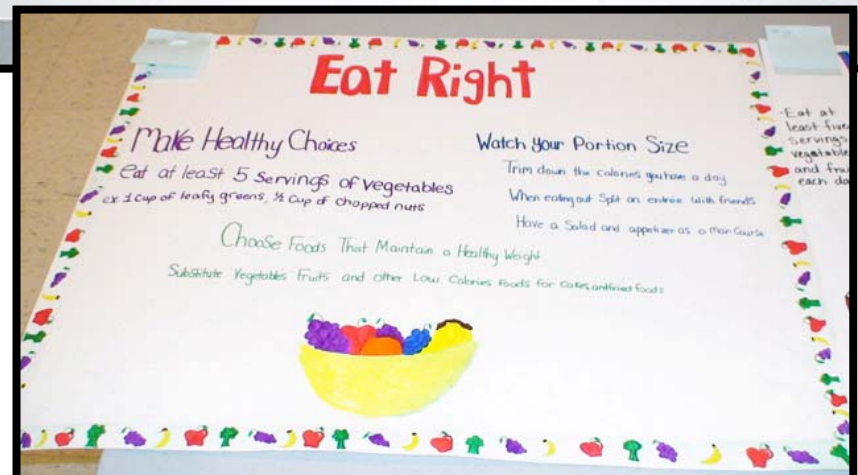 Eat Right
Make Healthy Choices
Eat at least 5 Servings of vegetables
ex 1 cup of leafy greens, ½ cup of chopped nuts
Watch Your Portion Size
Trim down the calories you have a day
When eating out Split an entrée with friends
Have a Salad and appetizer as a Main Course
Choose Foods That Maintain a Healthy Weight
Substitute Vegetables Fruits and other Low Calories Foods for cakes, and fried foods
-Eat at
least five
servings
vegetable
and fru
each da